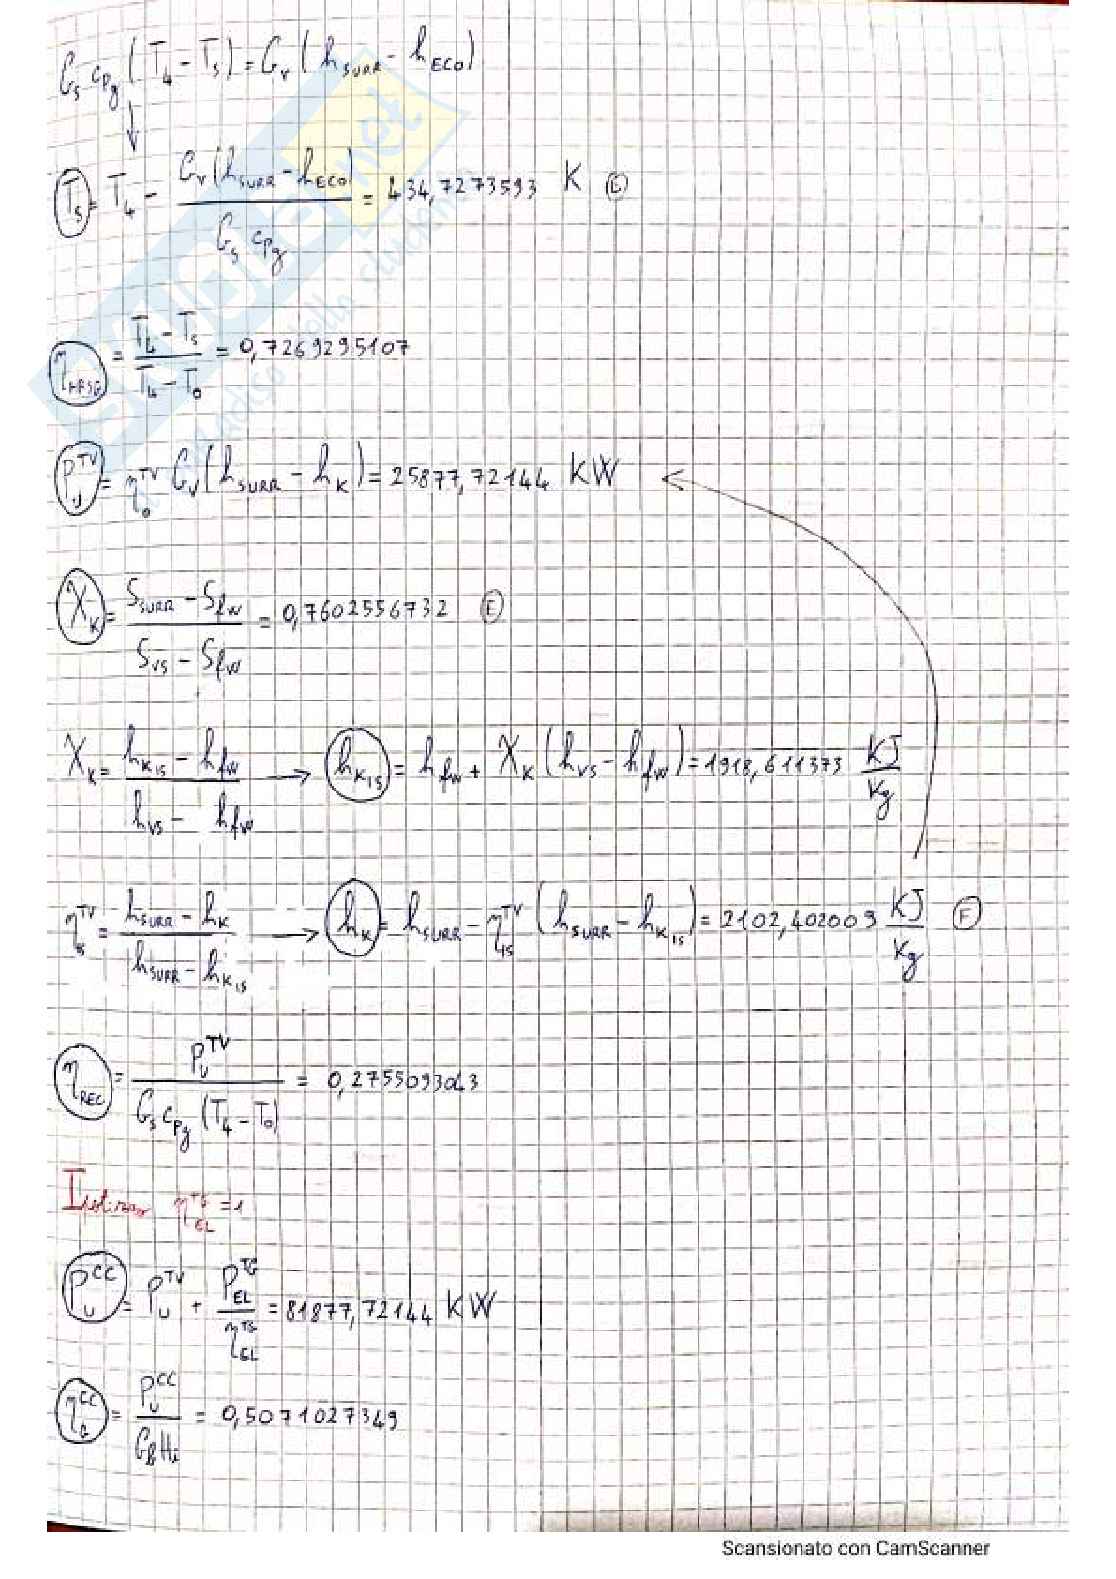 G_s c_pg (T_4 - T_5) = G_v (h_SURR - h_ECO)
↓
T_5 = T_4 - G_v (h_SURR - h_ECO) / G_s c_pg = 434,7273593 K (E)
η_HRSG = T_4 - T_5 / T_4 - T_0 = 0,7269295107
P_U^TV = η_0^TV G_v (h_SURR - h_K) = 25877,72144 KW
X_K = S_SURR - S_fw / S_VS - S_fw = 0,7602556732 (E)
X_K = h_K_IS - h_fw / h_VS - h_fw → h_K_IS = h_fw + X_K (h_VS - h_fw) = 1918,611373 KJ/Kg
η_IS^TV = h_SURR - h_K / h_SURR - h_K_IS → h_K = h_SURR - η_IS^TV (h_SURR - h_K_IS) = 2102,402009 KJ/Kg (F)
η_REC = P_U^TV / G_s c_pg (T_4 - T_0) = 0,2755093043
Ipotizzo η_EL^TG = 1
P_U^CC = P_U^TV + P_EL^TG / η_EL^TG = 81877,72144 KW
η_g^CC = P_U^CC / G_b H_i = 0,5071027349
Scansionato con CamScanner